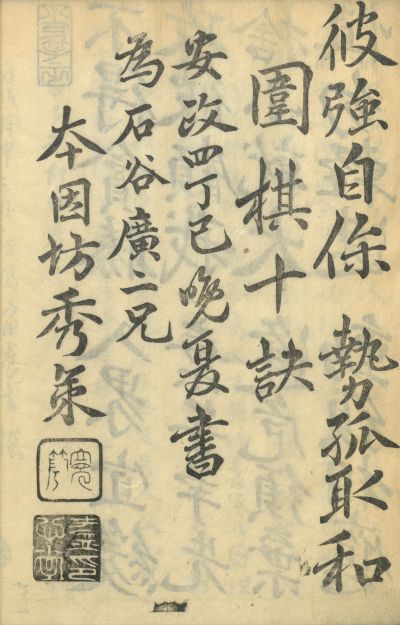 彼強自保 勢孤取和
圍棋十訣
安政四丁巳晩夏書
為石谷廣二兄
本因坊秀策